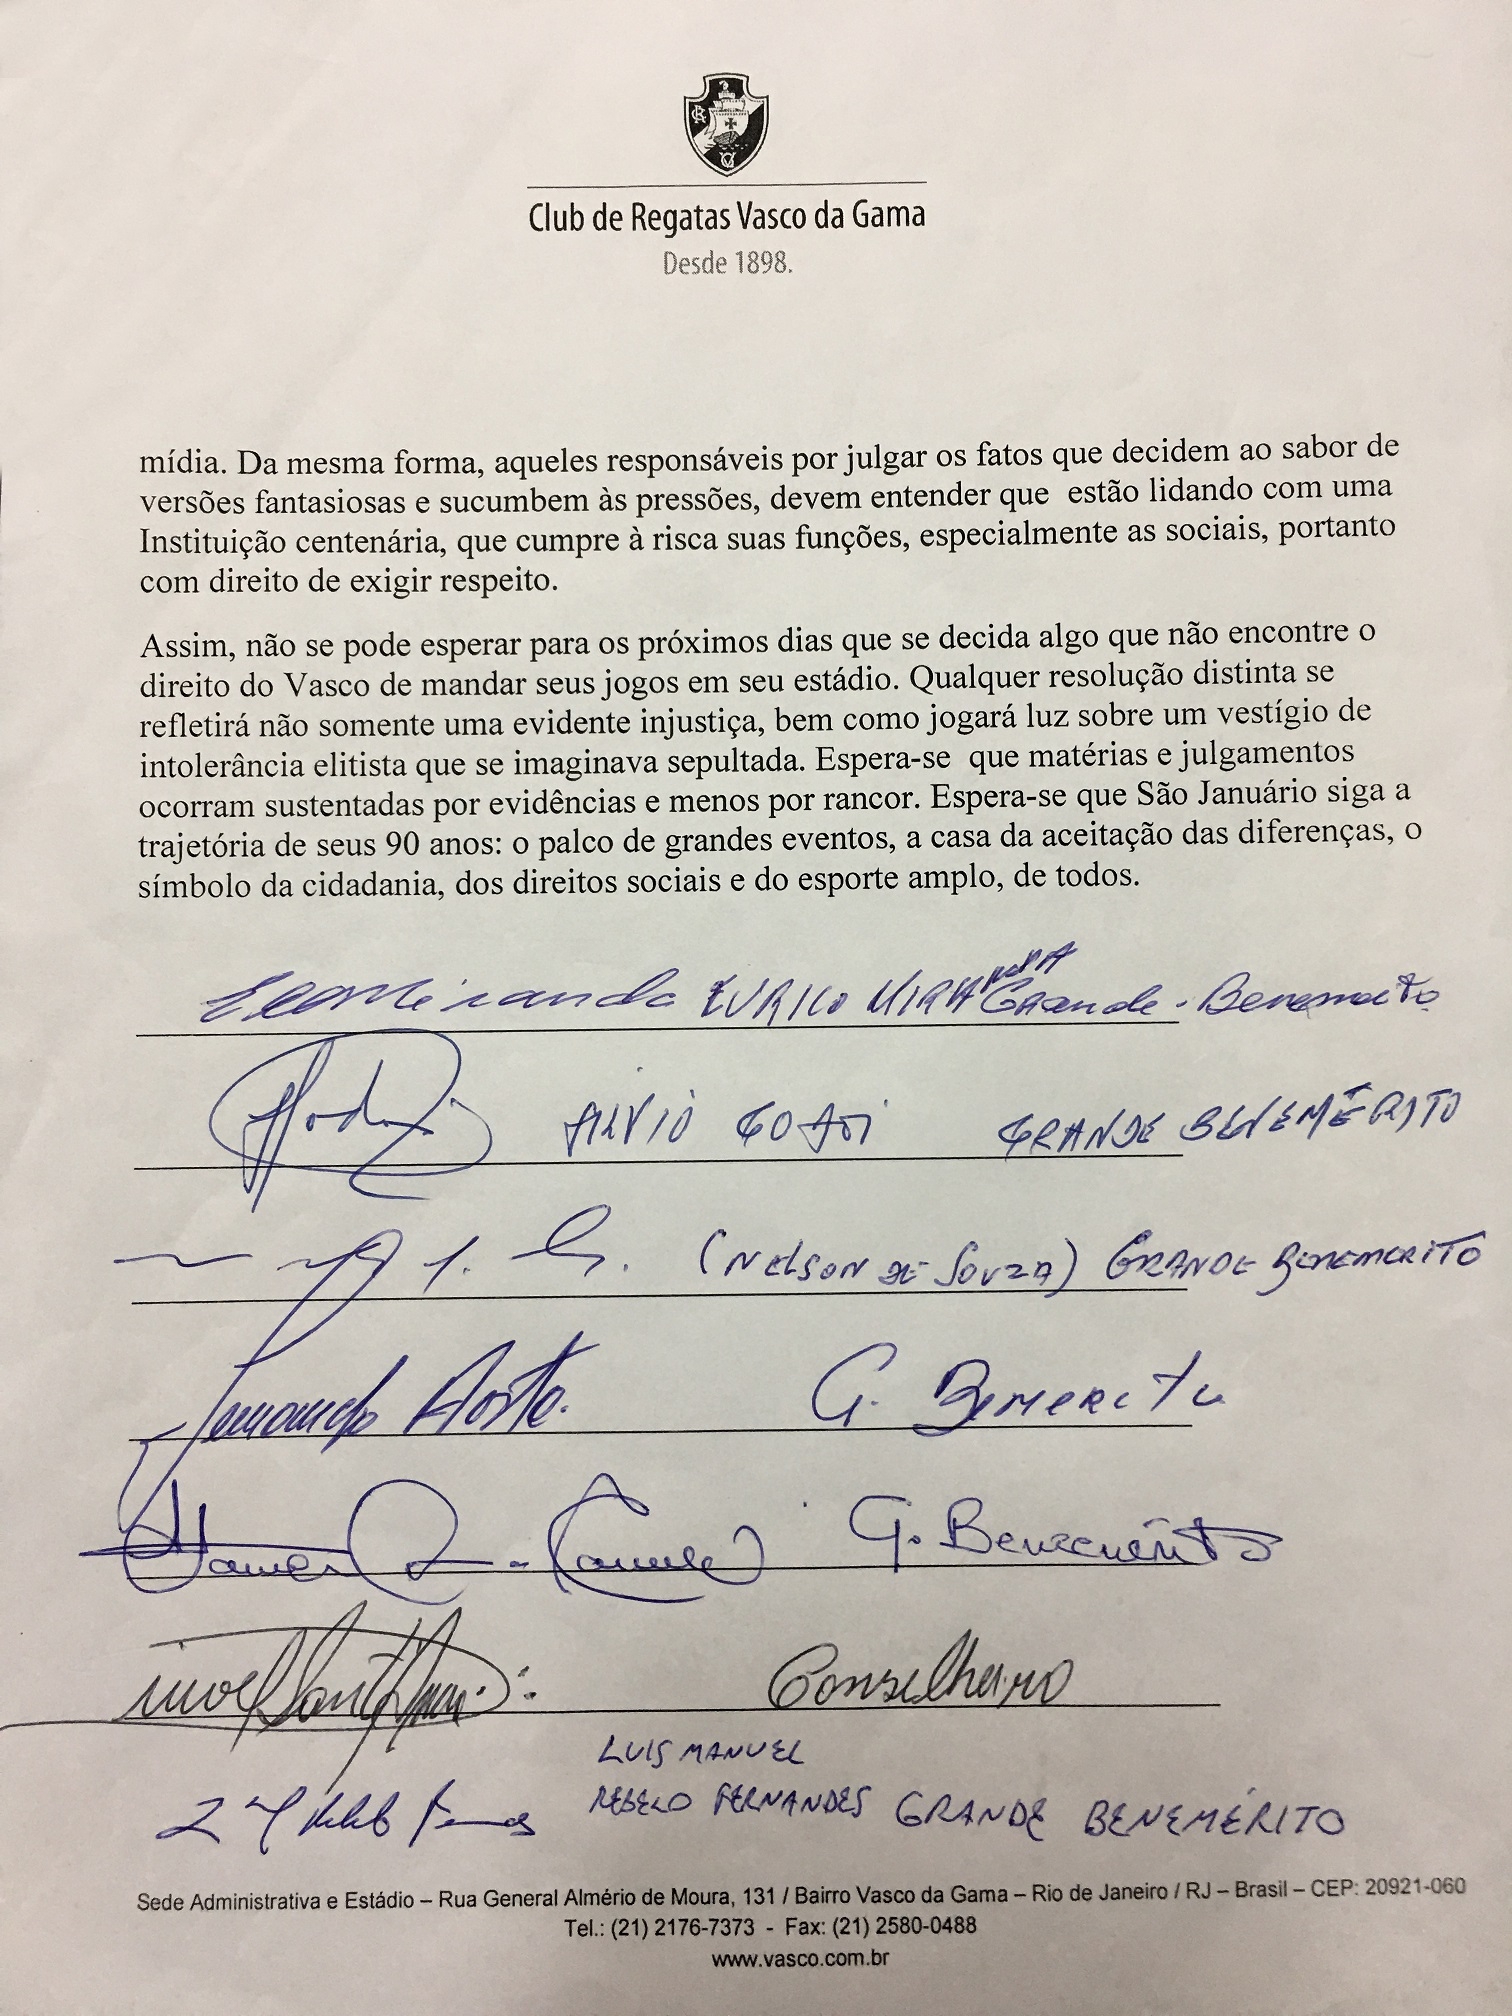 Club de Regatas Vasco da Gama
Desde 1898.
mídia. Da mesma forma, aqueles responsáveis por julgar os fatos que decidem ao sabor de
versões fantasiosas e sucumbem às pressões, devem entender que estão lidando com uma
Instituição centenária, que cumpre à risca suas funções, especialmente as sociais, portanto
com direito de exigir respeito.
Assim, não se pode esperar para os próximos dias que se decida algo que não encontre o
direito do Vasco de mandar seus jogos em seu estádio. Qualquer resolução distinta se
refletirá não somente uma evidente injustiça, bem como jogará luz sobre um vestígio de
intolerância elitista que se imaginava sepultada. Espera-se que matérias e julgamentos
ocorram sustentadas por evidências e menos por rancor. Espera-se que São Januário siga a
trajetória de seus 90 anos: o palco de grandes eventos, a casa da aceitação das diferenças, o
símbolo da cidadania, dos direitos sociais e do esporte amplo, de todos.
EURICO MIRANDA Grande-Benemerito
SILVIO GODOI GRANDE BENEMÉRITO
(NELSON DE SOUZA) GRANDE BENEMERITO
G. BENEMERITO
G. Benemérito
Conselheiro
LUIS MANUEL
REBELO FERNANDES GRANDE BENEMÉRITO
Sede Administrativa e Estádio – Rua General Almério de Moura, 131 / Bairro Vasco da Gama – Rio de Janeiro / RJ – Brasil – CEP: 20921-060
Tel.: (21) 2176-7373 - Fax: (21) 2580-0488
www.vasco.com.br